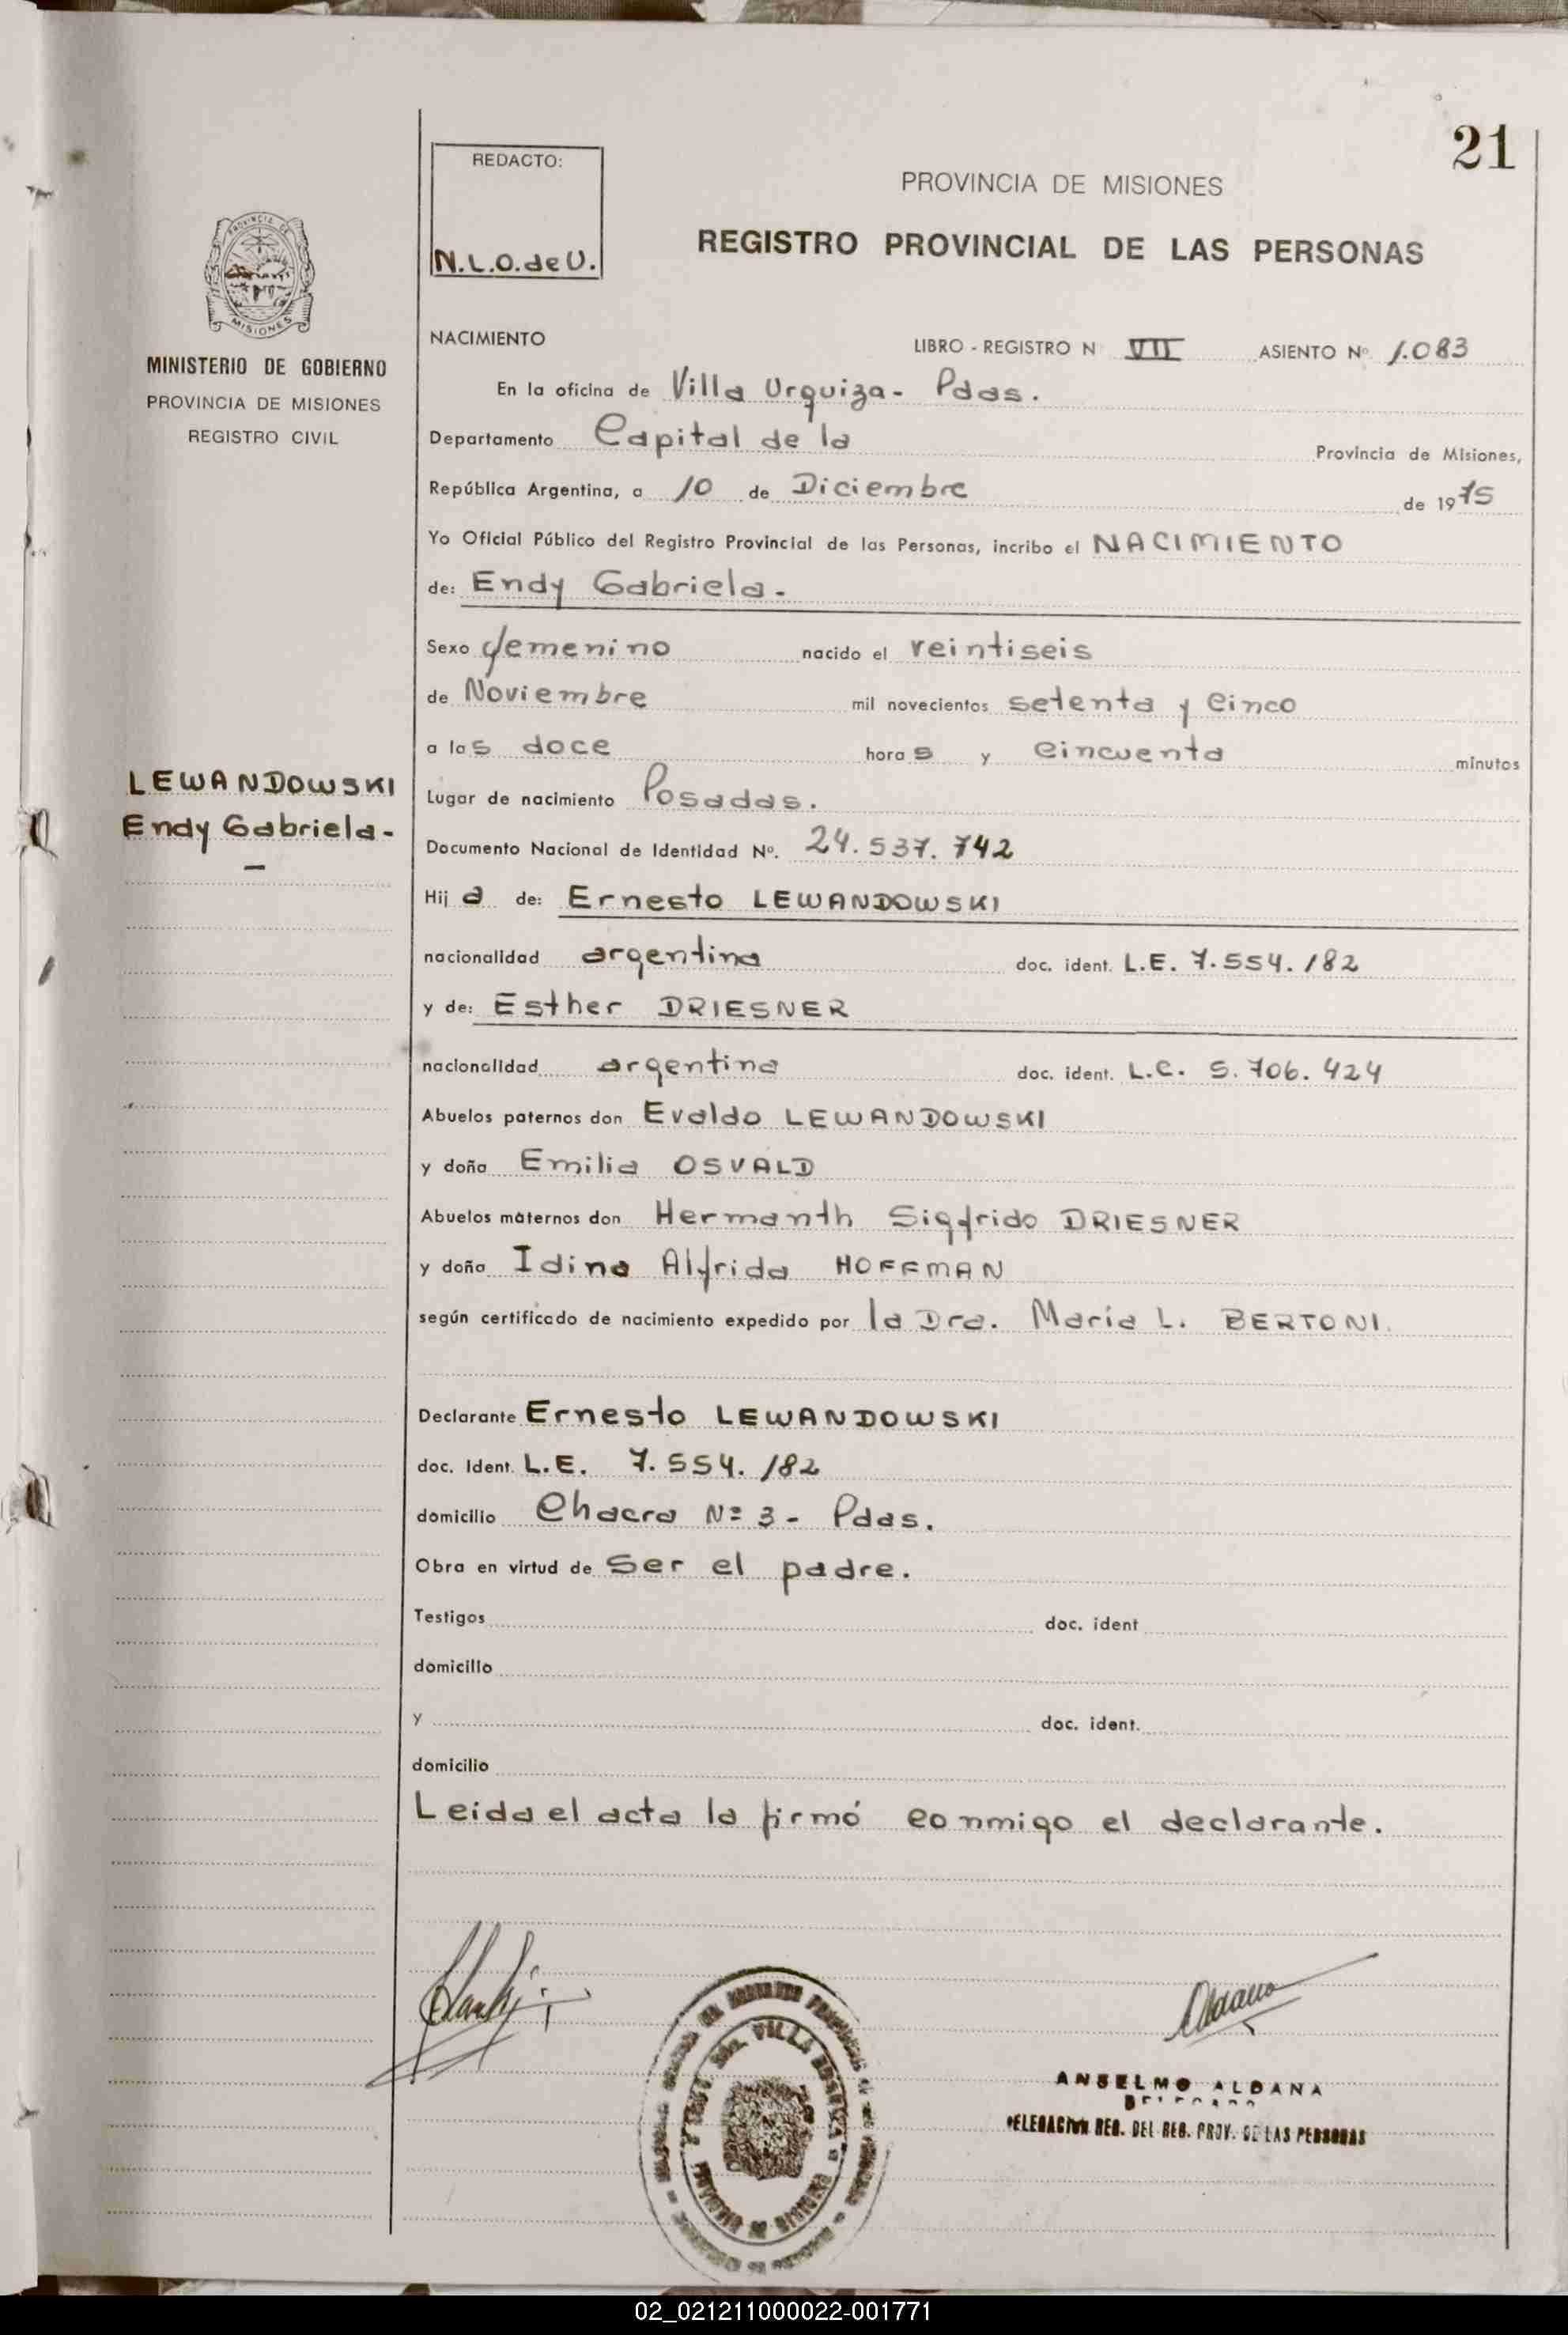 21
REDACTO:
N.L.O. de U.
PROVINCIA DE MISIONES
REGISTRO PROVINCIAL DE LAS PERSONAS
PROVINCIA DE
MISIONES
MINISTERIO DE GOBIERNO
PROVINCIA DE MISIONES
REGISTRO CIVIL
NACIMIENTO
LIBRO - REGISTRO N VII ASIENTO Nº 1.083
En la oficina de Villa Urquiza - Pdas.
Departamento Capital de la Provincia de Misiones,
República Argentina, a 10 de Diciembre de 1975
Yo Oficial Público del Registro Provincial de las Personas, incribo el NACIMIENTO
de: Endy Gabriela.-
Sexo femenino nacido el veintiseis
de Noviembre mil novecientos setenta y cinco
a las doce horas y cincuenta minutos
LEWANDOWSKI
Endy Gabriela.-
Lugar de nacimiento Posadas.
Documento Nacional de Identidad Nº. 24.537.742
Hija de: Ernesto LEWANDOWSKI
nacionalidad argentina doc. ident. L.E. 7.554.182
y de: Esther DRIESNER
nacionalidad argentina doc. ident. L.C. 5.706.424
Abuelos paternos don Evaldo LEWANDOWSKI
y doña Emilia OSVALD
Abuelos maternos don Hermanth Sigfrido DRIESNER
y doña Idina Alfrida HOFFMAN
según certificado de nacimiento expedido por la Dra. María L. BERTONI.
Declarante Ernesto LEWANDOWSKI
doc. Ident. L.E. 7.554.182
domicilio Chacra Nº 3 - Pdas.
Obra en virtud de ser el padre.
Testigos doc. ident
domicilio
y doc. ident.
domicilio
Leida el acta la firmó conmigo el declarante.
VILLA URQUIZA
Aldana
ANSELMO ALDANA
DELEGACION REG. DEL REG. PROV. DE LAS PERSONAS
02_021211000022-001771